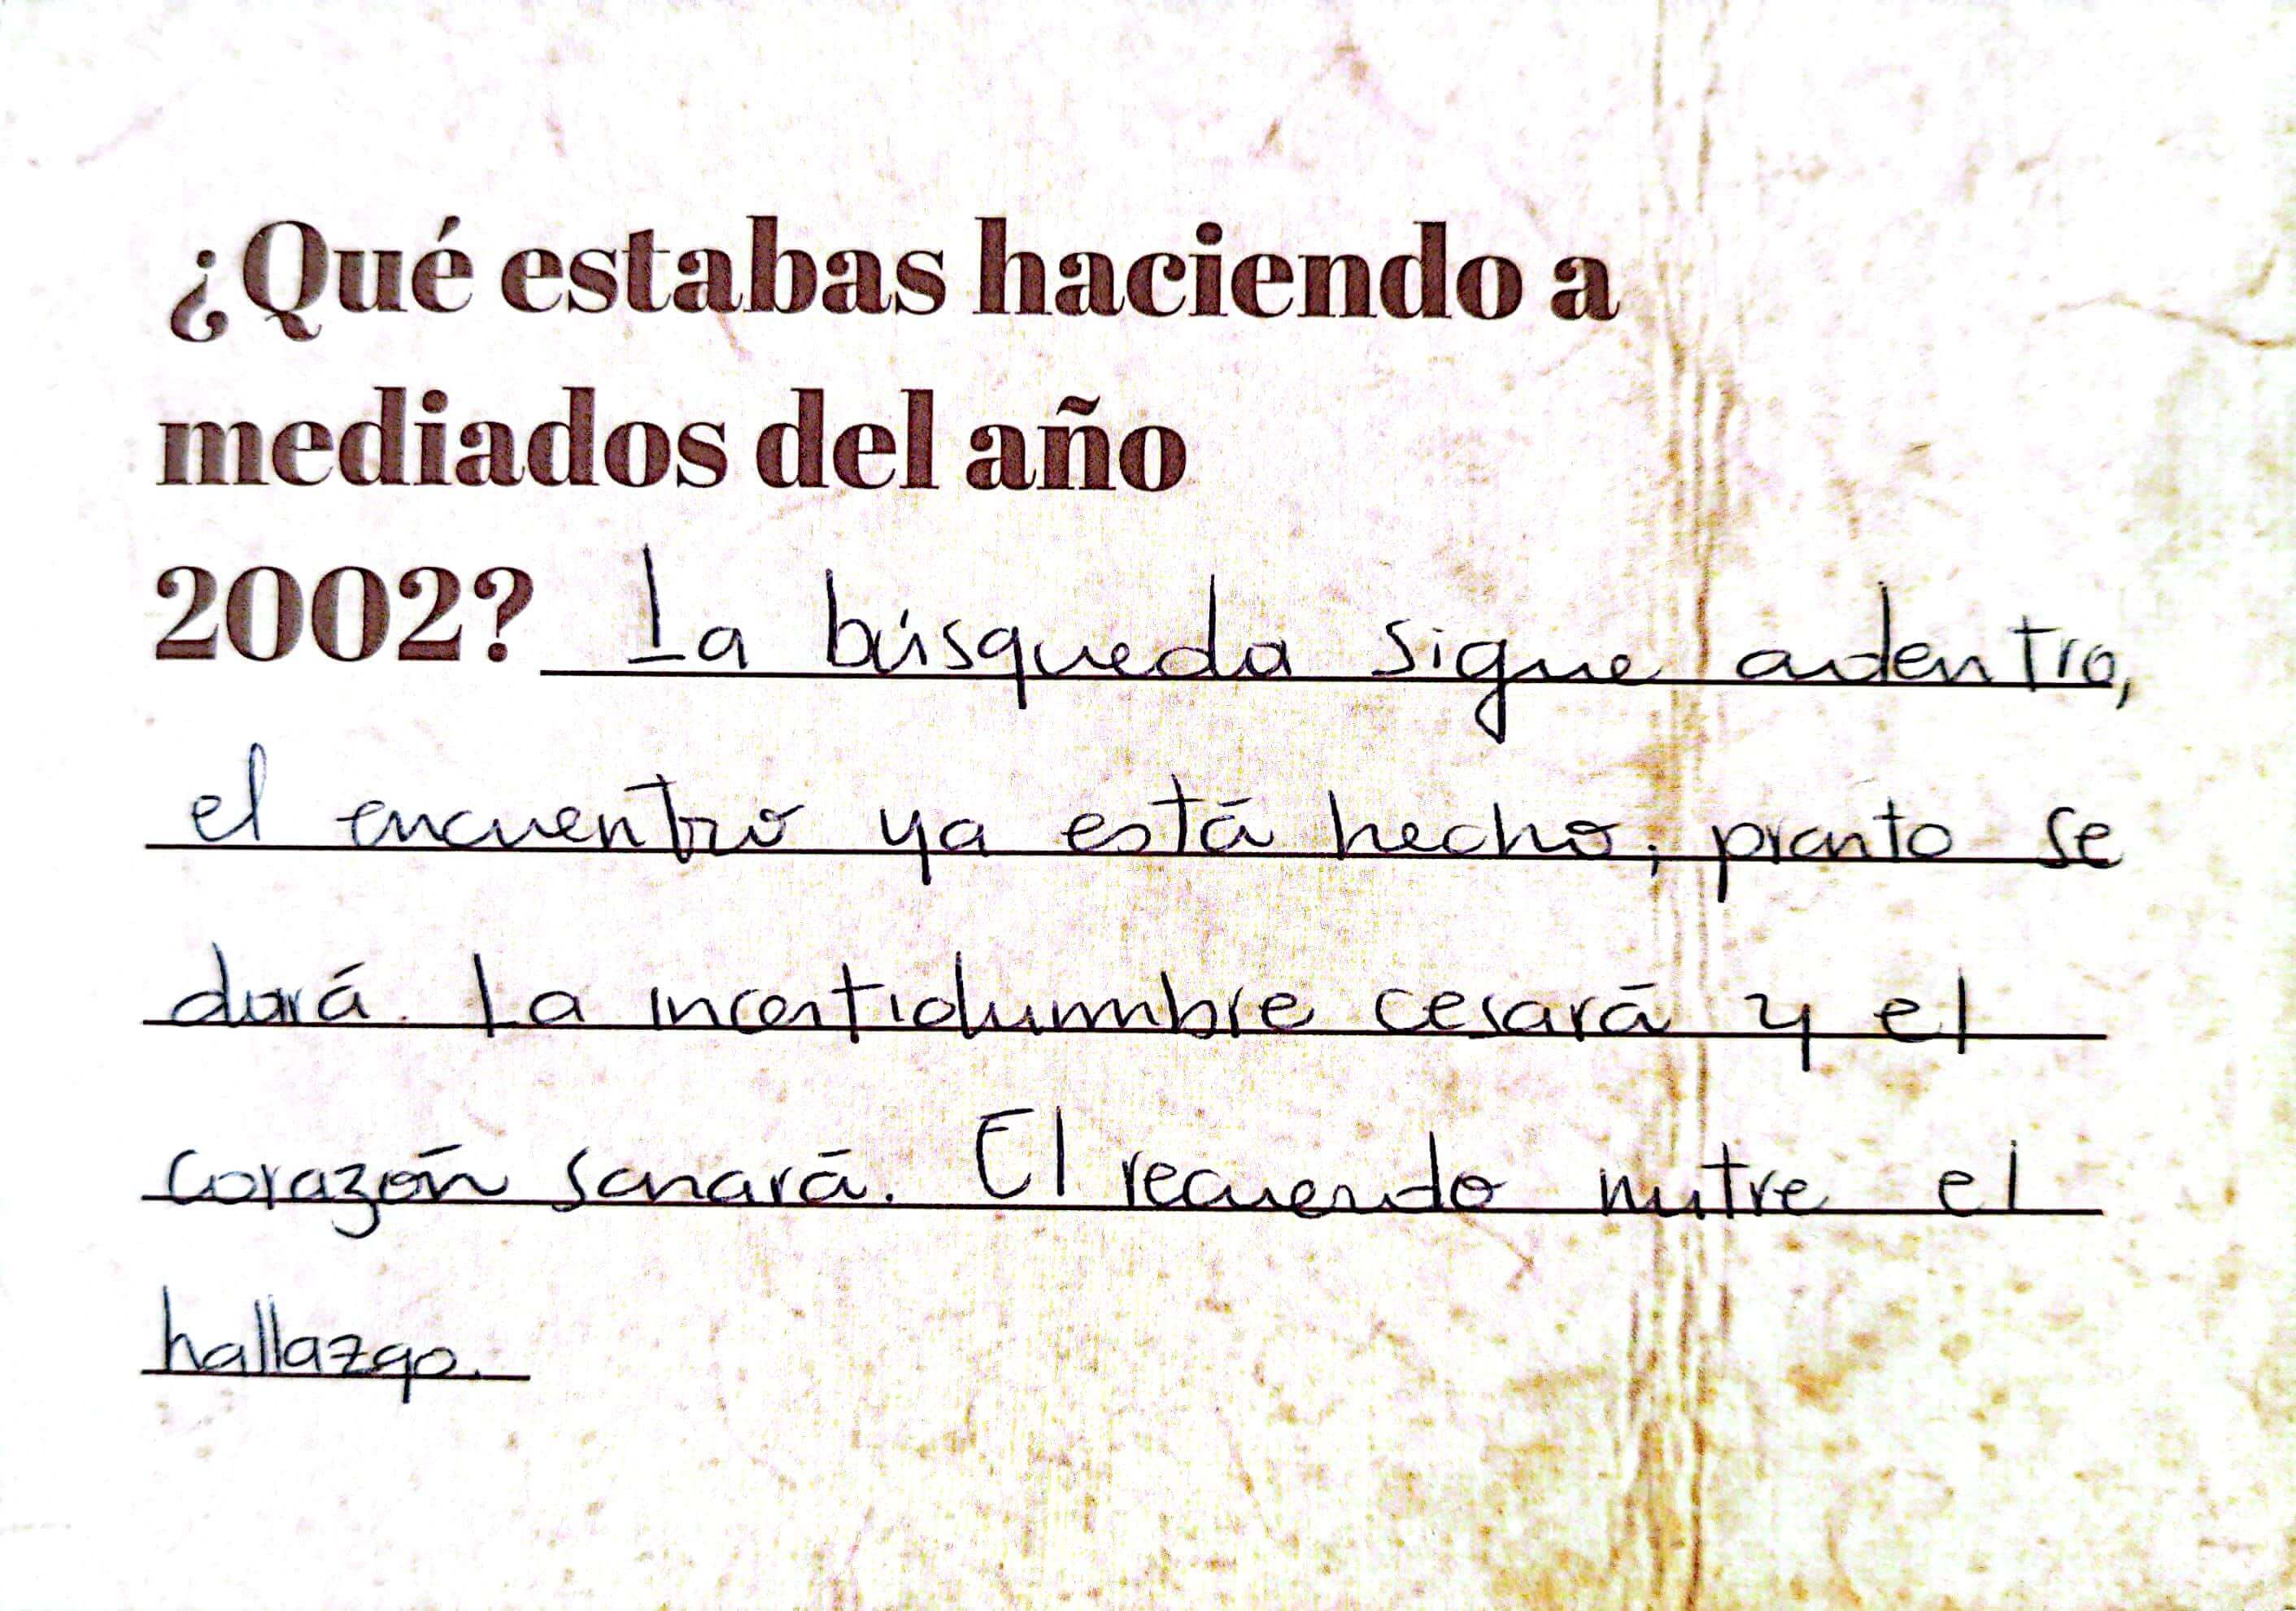 ¿Qué estabas haciendo a
mediados del año
2002? La búsqueda sigue adentro,
el encuentro ya está hecho; pronto se
dará. La incertidumbre cesará y el
corazón sanará. El recuerdo nutre el
hallazgo.